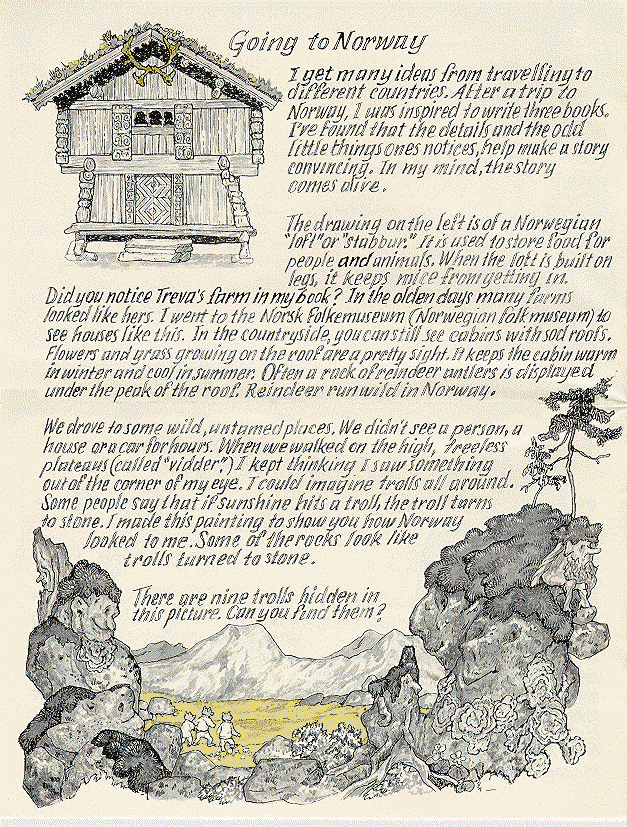 Going to Norway
I get many ideas from travelling to
different countries. After a trip to
Norway, I was inspired to write three books.
I've found that the details and the odd
little things ones notices, help make a story
convincing. In my mind, the story
comes alive.
The drawing on the left is of a Norwegian
"loft" or "stabbur." It is used to store food for
people and animals. When the loft is built on
legs, it keeps mice from getting in.
Did you notice Treva's farm in my book? In the olden days many farms
looked like hers. I went to the Norsk Folkemuseum (Norwegian folk museum) to
see houses like this. In the countryside, you can still see cabins with sod roofs.
Flowers and grass growing on the roof are a pretty sight. It keeps the cabin warm
in winter and cool in summer. Often a rack of reindeer antlers is displayed
under the peak of the roof. Reindeer run wild in Norway.
We drove to some wild, untamed places. We didn't see a person, a
house or a car for hours. When we walked on the high, treeless
plateaus (called "vidder") I kept thinking I saw something
out of the corner of my eye. I could imagine trolls all around.
Some people say that if sunshine hits a troll, the troll turns
to stone. I made this painting to show you how Norway
looked to me. Some of the rocks look like
trolls turned to stone.
There are nine trolls hidden in
this picture. Can you find them?